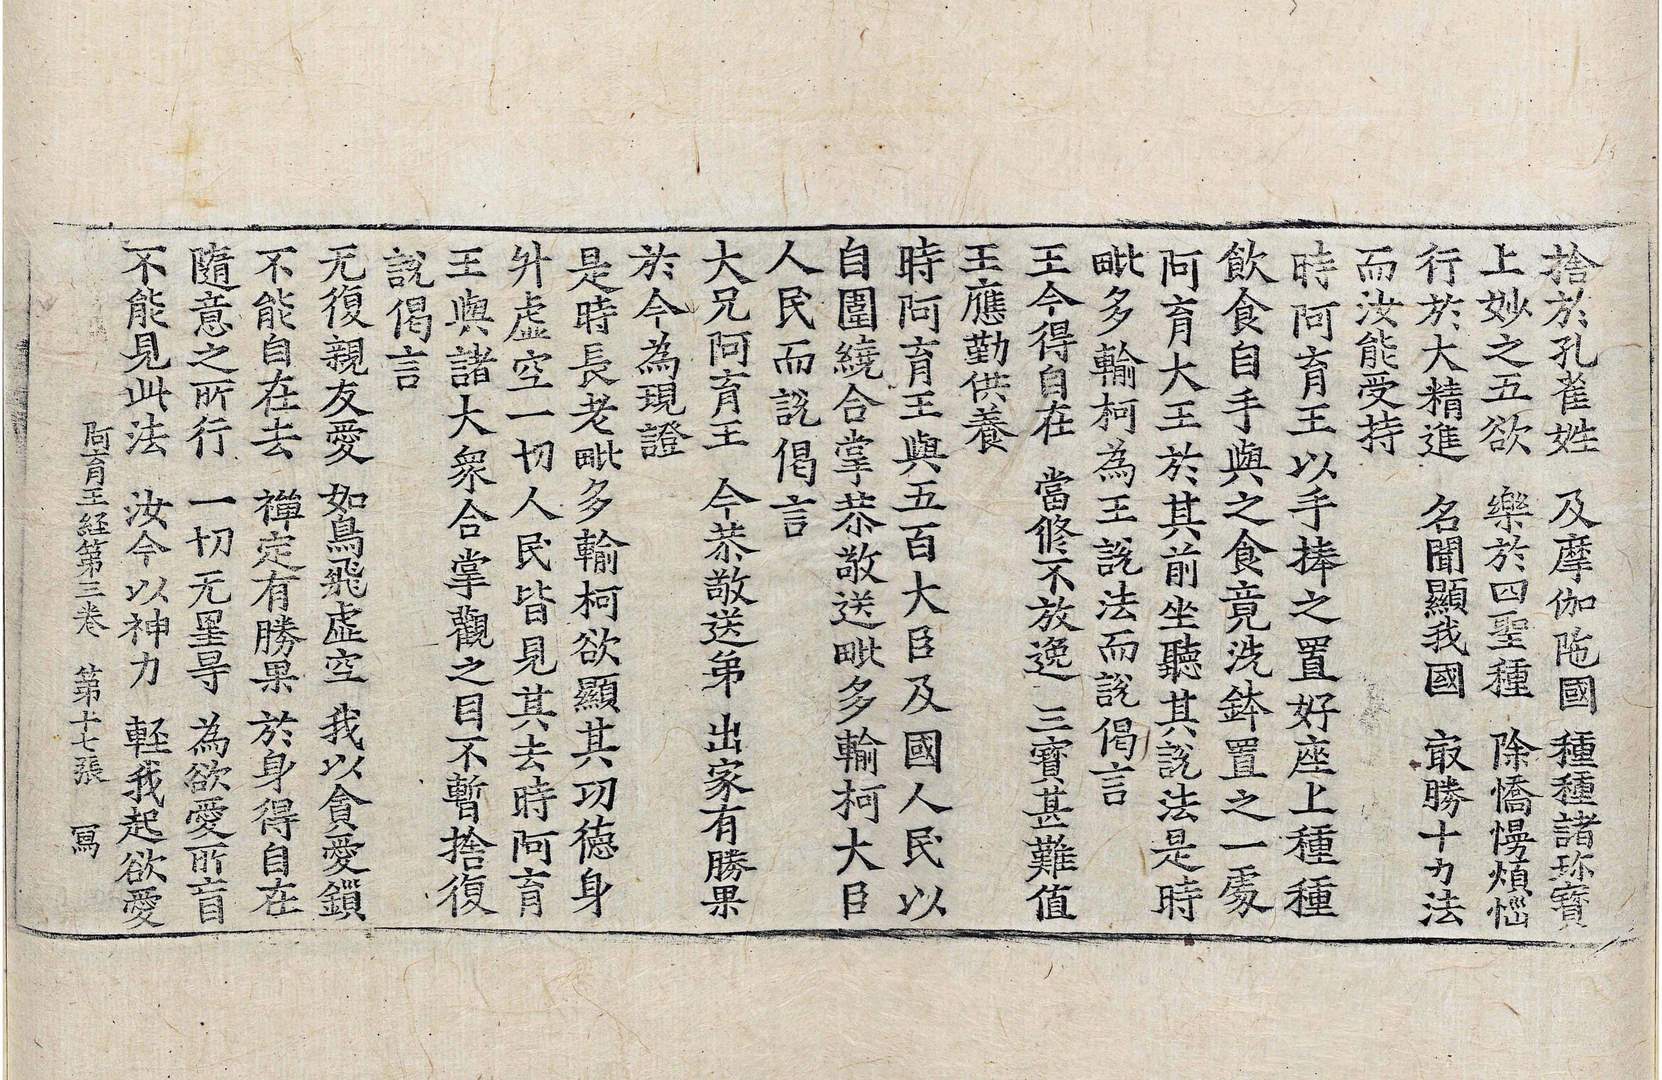 捨於孔雀姓 及摩伽陁國 種種諸珎寶
上妙之五欲 樂於四聖種 除憍慢煩惱
行於大精進 名聞顯我國 㝡勝十力法
而汝能受持
時阿育王以手捧之置好座上種種
飲食自手與之食竟洗鉢置之一處
阿育大王於其前坐聽其說法是時
毗多輸柯為王說法而說偈言
王今得自在 當修不放逸 三寶甚難值
王應勤供養
時阿育王與五百大臣及國人民以
自圍繞合掌恭敬送毗多輸柯大臣
人民而說偈言
大兄阿育王 今恭敬送弟 出家有勝果
於今為現證
是時長老毗多輸柯欲顯其功德身
升虛空一切人民皆見其去時阿育
王與諸大衆合掌觀之目不暫捨復
說偈言
无復親友愛 如鳥飛虛空 我以貪愛鎖
不能自在去 禪定有勝果 於身得自在
隨意之所行 一切无罣㝵 為欲愛所盲
不能見此法 汝今以神力 軽我起欲愛
阿育王経第三卷 第十七張 冩